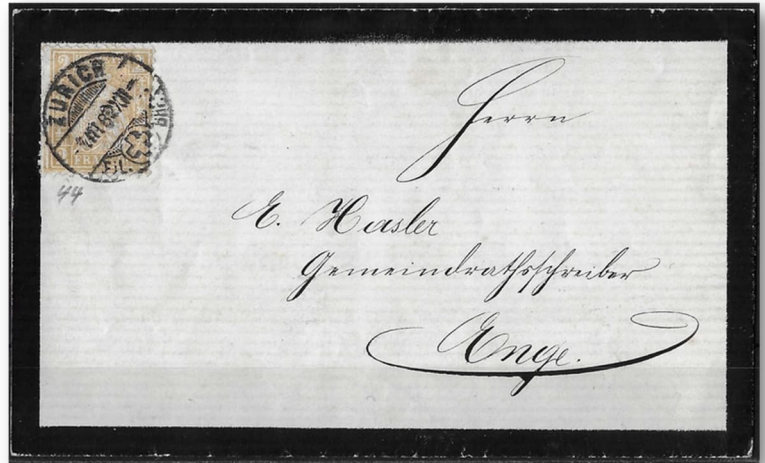 ZÜRICH
FIL.
FRANCO
44
Herrn
E. Hasler
Gemeindrathsschreiber
Enge.